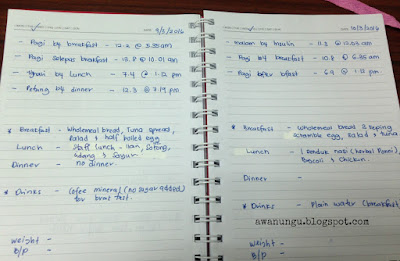 9/5/2016
- Pagi b4 breakfast - 12.2 @ 5.35 am
- Pagi selepas breakfast - 13.8 @ 10.01 am
- b4 lunch - 7.4 @ 1.12 pm
- Petang b4 dinner - 12.3 @ 7.19 pm
* Breakfast - Wholemeal bread, Tuna spread,
Salad & half boiled egg
Lunch - Staff lunch - Ikan, Sotong,
Udang & Sayur
Dinner - no dinner
* Drinks - Coffee mineral (no sugar added)
for breakfast.
Weight -
B/P -
10/5/2016
- Malam b4 - 11.3 @ 12.03 am
- Pagi b4 breakfast - 10.8 @ 6.35 am
- Pagi after bfast - 6.9 @ 1.12 pm
* Breakfast - Wholemeal bread 2 keping
Scramble egg, salad & tuna
Lunch - 1 senduk nasi (herbal Ponni),
Broccoli & Chicken.
Dinner -
* Drinks - Plain water (breakfast)
awanungu.blogspot.com
Weight -
B/P -